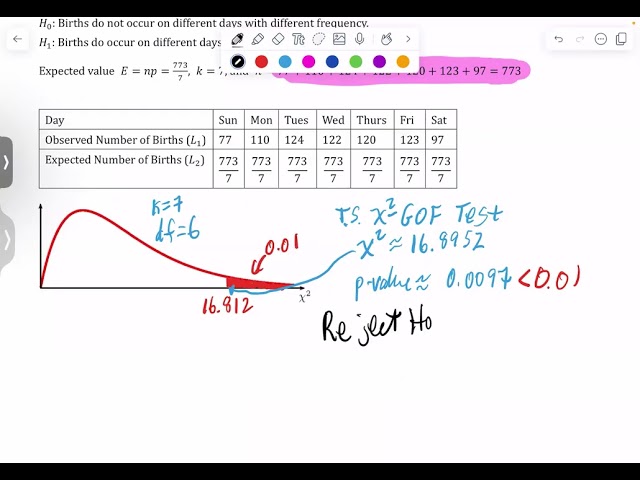 H₀: Births do not occur on different days with different frequency.
H₁: Births do occur on different days
Expected value E = np = 773/7, k = 7, and + 123 + 97 = 773
Day Sun Mon Tues Wed Thurs Fri Sat
Observed Number of Births (L₁) 77 110 124 122 120 123 97
Expected Number of Births (L₂) 773/7 773/7 773/7 773/7 773/7 773/7 773/7
K=7
df=6
T.S. χ²-GOF Test
χ² ≈ 16.8952
0.01
p-value ≈ 0.0097 < 0.01
16.812
χ²
Reject Ho